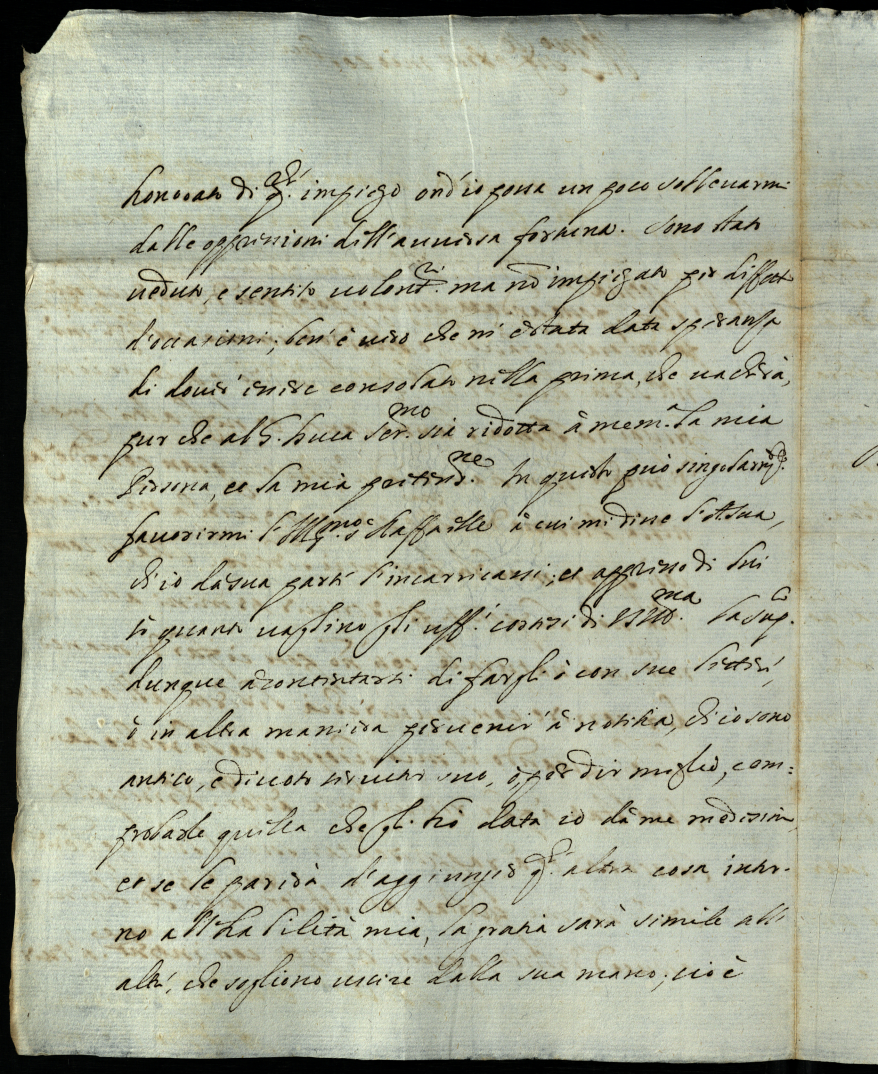 honorato di q.ᶜʰᵉ impiego ond'io possa un poco sollevarmi
dalle oppressioni dell'auuersa fortuna. Sono stato
ueduto, e sentito uolent.ʳⁱ ma nō impiegato per diffetto
d'occasioni; ben' è uero che m'è stata data speranza
di douer' essere consolato nella prima, che uacherà,
pur che al S. Duca Ser.ᵐᵒ sia ridotta à mem.ᵃ la mia
Persona, et la mia pretens.ⁿᵉ In questo può singolarm.ᵗᵉ
fauorirmi l'Ill.ᵐᵒ S.ʳ Raffaelle à cui mi disse l'Alt. sua,
ch'io da sua parte l'incaricassi; et appresso di lui
sò quanto uaglino gli uff.ⁱ cortesi di VS Ill.ᵐᵃ La sup.ᶜᵒ
dunque à contentarsi di fargli ò con sue lettere,
ò in altra maniera peruenir' à notitia, ch'io sono
antico, e diuoto seruitor suo, ò per dir meglio, com=
probarle quella che gli hò data io dà me medesimo,
et se le parerà d'aggiunger q.ᶜʰᵉ altra cosa intor-
no all'habilità mia, la gratia sarà simile all'
altre, che sogliono uscire dalla sua mano; cioè